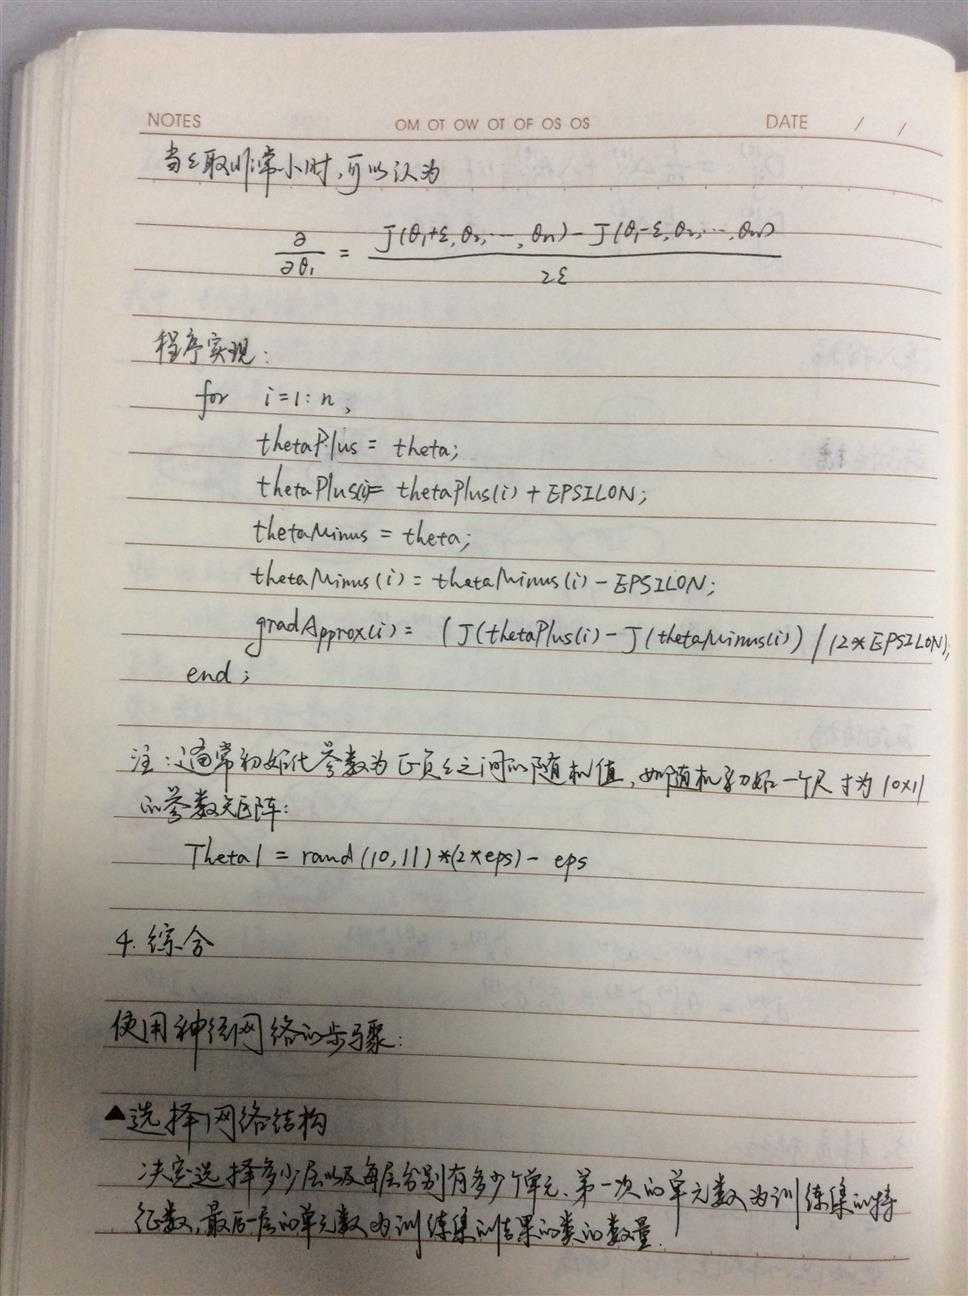 NOTES OM OT OW OT OF OS OS DATE / /
当ε取非常小时,可以认为
∂/∂θ₁ = (J(θ₁+ε,θ₂,…,θn)-J(θ₁-ε,θ₂,…,θn))/2ε
程序实现:
for i=1:n,
thetaPlus = theta;
thetaPlus(i)= thetaPlus(i)+EPSILON;
thetaMinus = theta;
thetaMinus(i)= thetaMinus(i)-EPSILON;
gradApprox(i)= (J(thetaPlus(i)-J(thetaMinus(i))/(2*EPSILON);
end;
注:通常初始化参数为正负ε之间的随机值,如随机初始一个尺寸为10×11
的参数矩阵:
Theta1 = rand(10,11)*(2*eps)- eps
4.综合
使用神经网络的步骤:
▲选择网络结构
决定选择多少层以及每层分别有多少个单元、第一次的单元数为训练集的特
征数,最后一层的单元数为训练集的结果的类的数量.